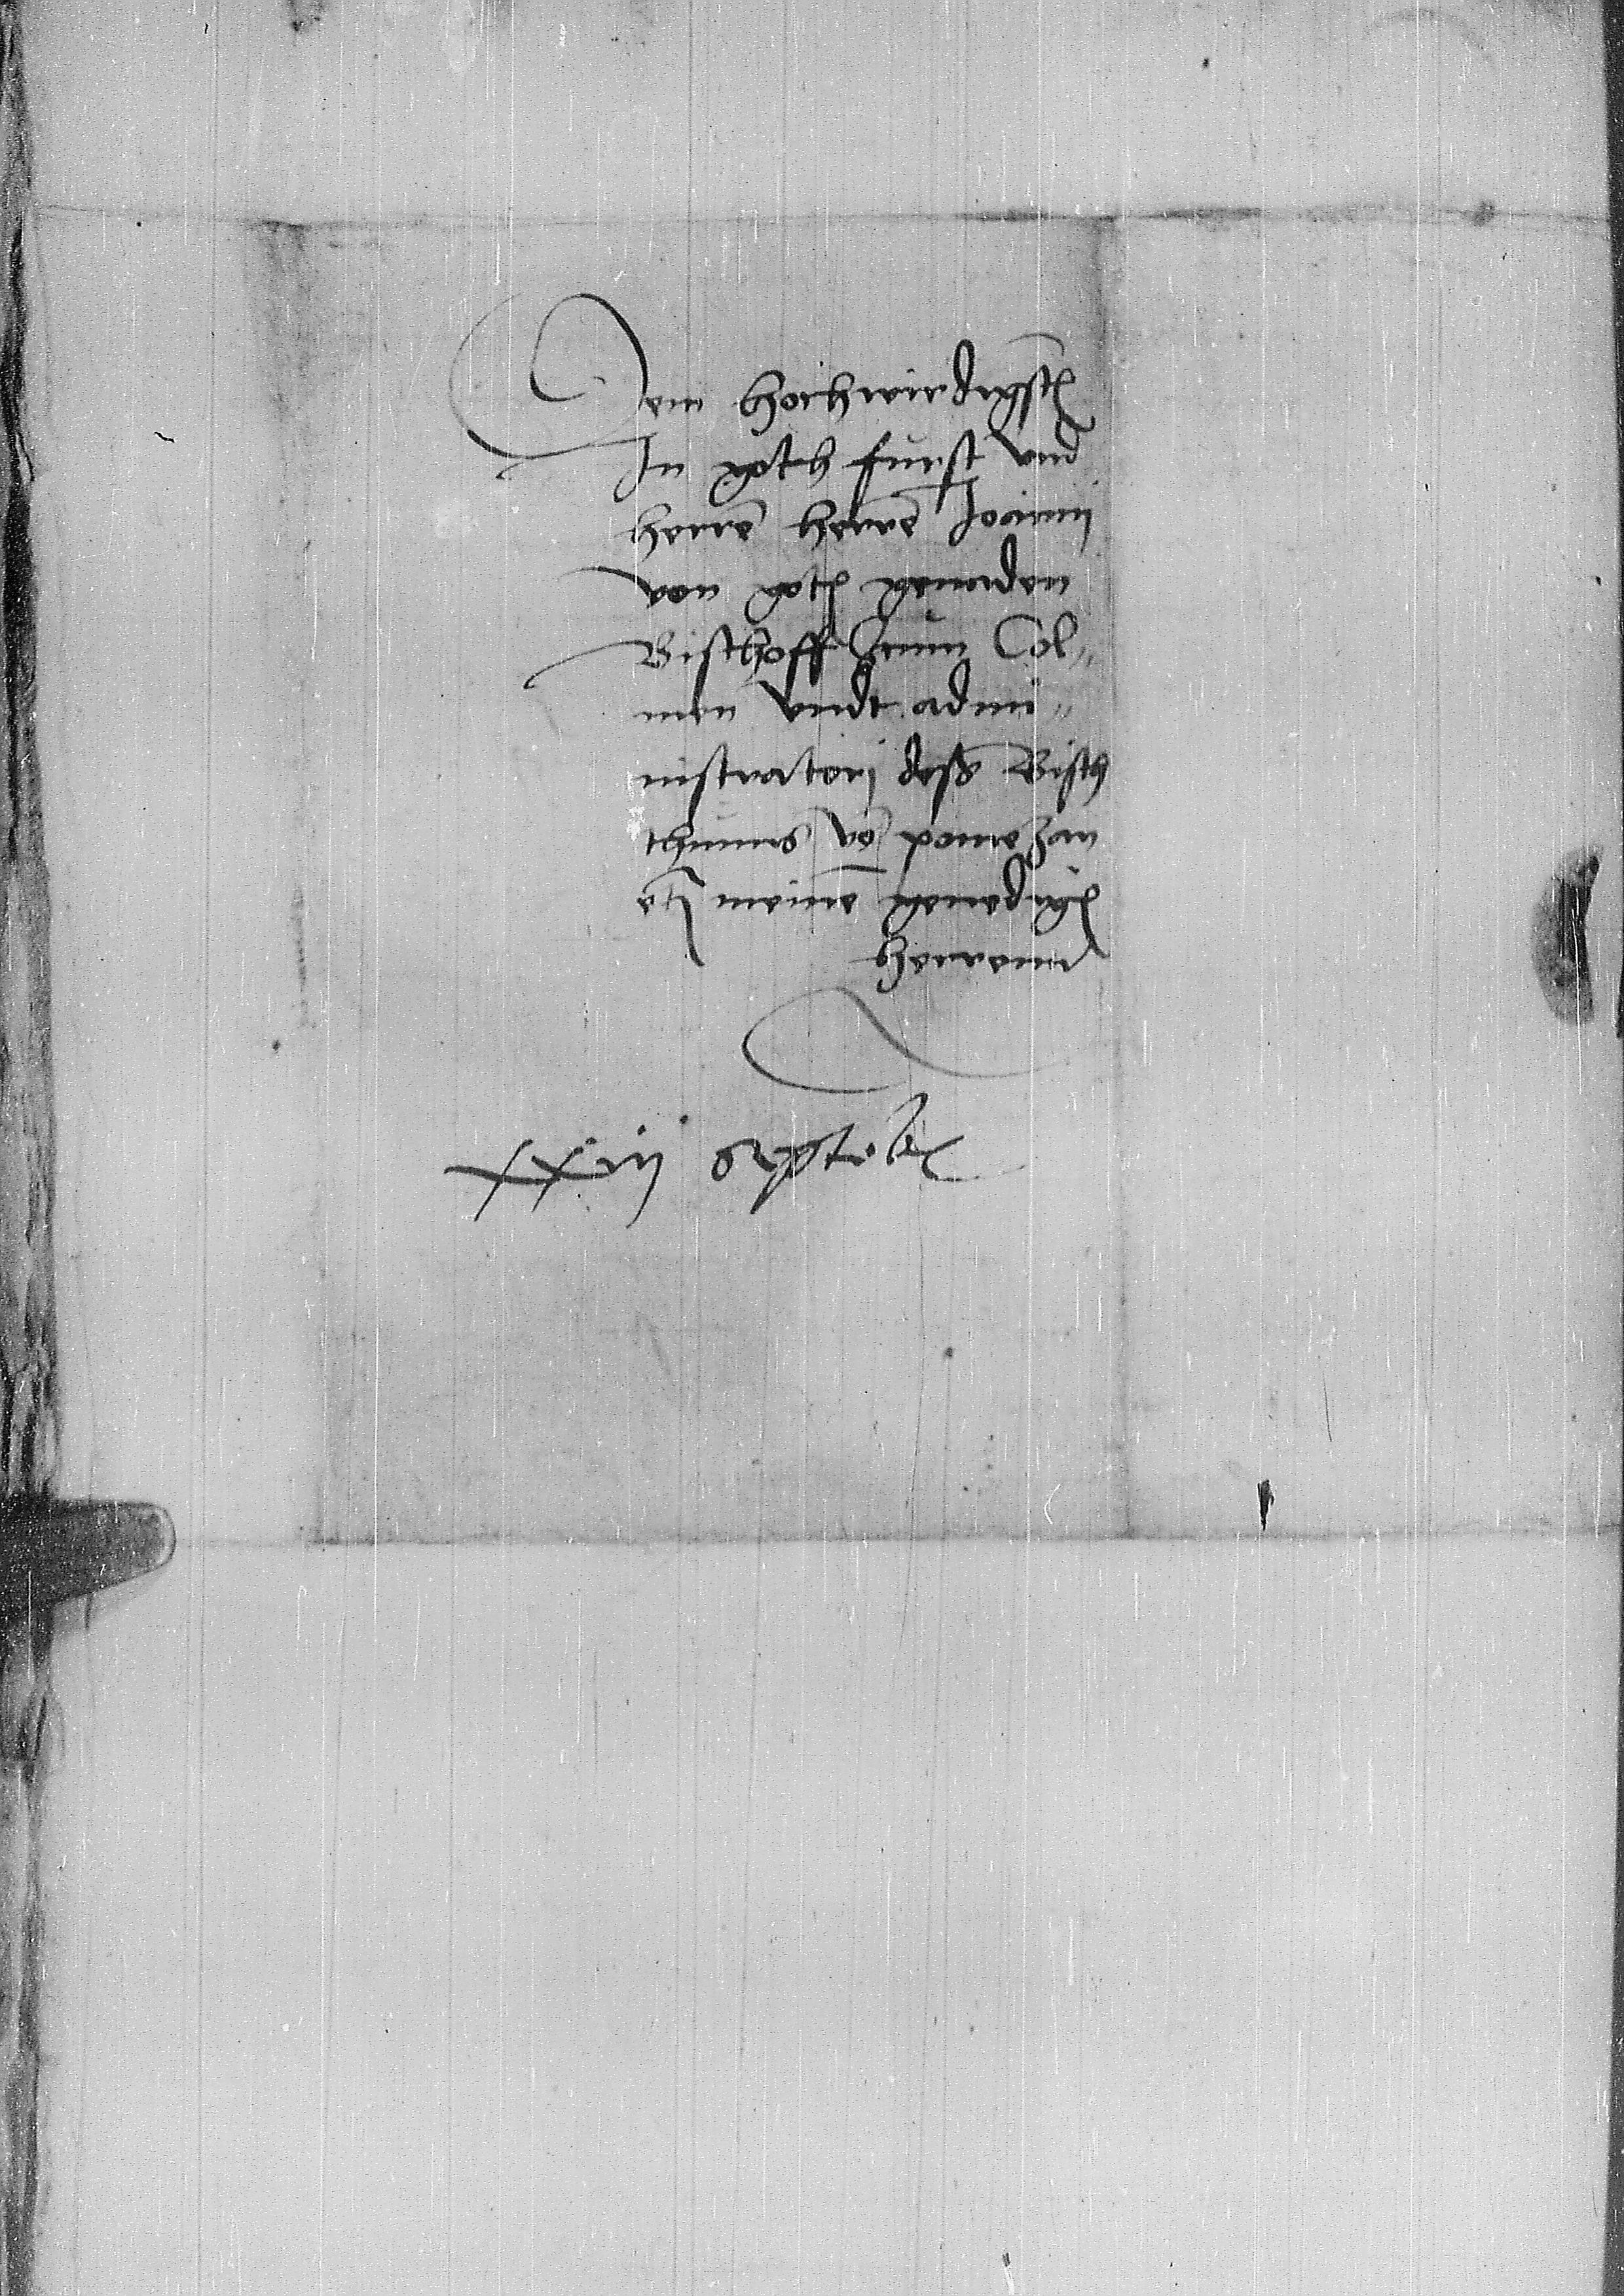 Dem hochwirdigst(en)
In goth furst vnd
herrē herrē Joanni
von got(es) genaden
Bischoff Zcum Col„
men vndt admi„
nistratori deß Bisch
thumbs vō pomezan
etc meinē genedig(en)
herrenn